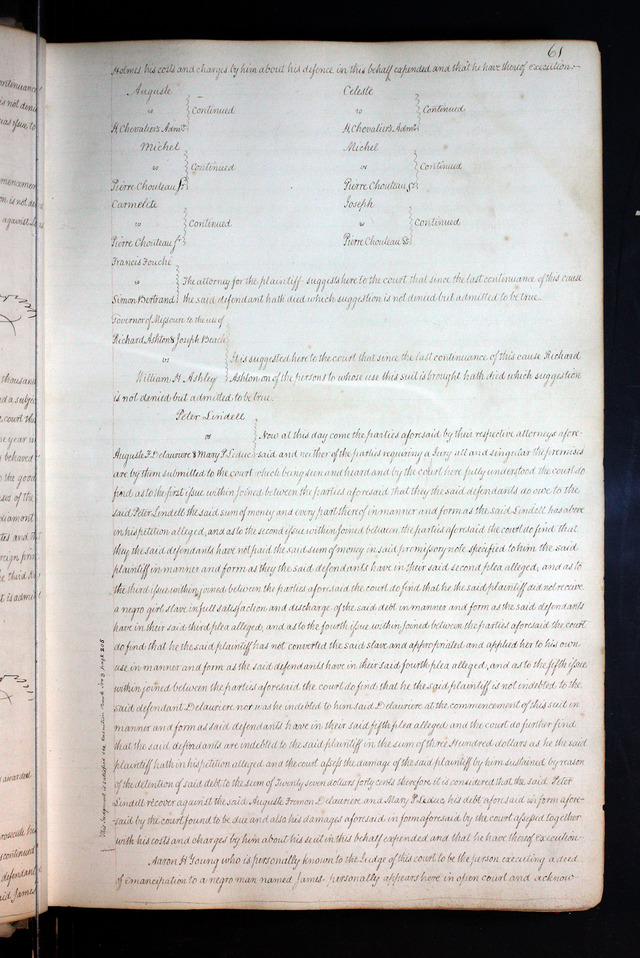 61
Holmes his costs and charges by him about his defence in this behalf expended and that he have thereof execution.
Auguste
vs } Continued
H. Chevalier's Admr.
Celeste
vs } Continued
H. Chevalier's Admr.
Michel
vs } Continued
Pierre Chouteau Jr.
Michel
vs } Continued
Pierre Chouteau Jr.
Carmelite
vs } Continued
Pierre Chouteau Jr.
Joseph
vs } Continued
Pierre Chouteau Sr.
Francis Fouché
vs } The attorney for the plaintiff suggests here to the court that since the last continuance of this cause
Simon Bertrand } the said defendant hath died which suggestion is not denied but admitted to be true.
Governor of Missouri to the use of
Richard Ashton & Joseph Beach
vs } It is suggested here to the court that since the last continuance of this cause Richard
William H. Ashley } Ashton on of the persons to whose use this suit is brought hath died which suggestion
is not denied but admitted to be true.
Peter Lindell
vs } Now at this day come the parties aforesaid by their respective attorneys afore-
Auguste F. Delauriere & Mary P. Leduc } said and neither of the parties requiring a Jury all and singular the premises
are by them submitted to the court which being seen and heard and by the court here fully understood the court do
find as to the first issue within joined between the parties aforesaid that they the said defendants do owe to the
said Peter Lindell the said sum of money and every part thereof in manner and form as the said Lindell has above
in his petition alleged, and as to the second issue within joined between the parties aforesaid the court do find that
they the said defendants have not paid the said sum of money in said promissory note specified to him the said
plaintiff in manner and form as they the said defendants have in their said second plea alleged, and as to
the third issue within joined between the parties aforesaid the court do find that he the said plaintiff did not receive
a negro girl slave in full satisfaction and discharge of the said debt in manner and form as the said defendants
have in their said third plea alleged, and as to the fourth issue within joined between the parties aforesaid the court
do find that he the said plaintiff has not converted the said slave and appropriated and applied her to his own
use in manner and form as the said defendants have in their said fourth plea alleged, and as to the fifth issue
within joined between the parties aforesaid the court do find that he the said plaintiff is not indebted to the
said defendant Delauriere nor was he indebted to him said Delauriere at the commencement of this suit in
manner and form as said defendants have in their said fifth plea alleged and the court do further find
that the said defendants are indebted to the said plaintiff in the sum of three Hundred dollars as he the said
plaintiff hath in his petition alleged and the court assess the damage of the said plaintiff by him sustained by reason
of the detention of said debt to the sum of Twenty seven dollars forty cents therefore it is considered that the said Peter
Lindell recover against the said Auguste Fremon Delauriere and Mary P. Leduc, his debt aforesaid in form afore-
said by the court found to be due and also his damages aforesaid in form aforesaid by the court assessed together
with his costs and charges by him about his suit in this behalf expended and that he have thereof execution
Aaron H Young who is personally known to the Judge of this court to be the person executing a deed
of emancipation to a negro man named James personally appears here in open court and acknow-
This judgment is satisfied see execution book No 3 page 208